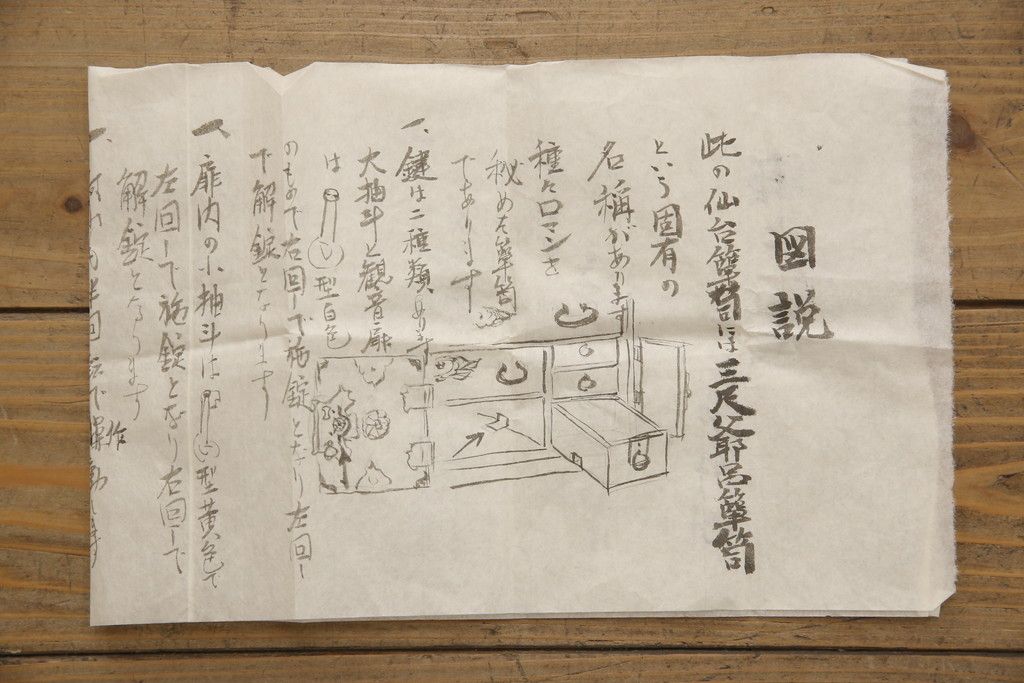 図説
此の仙台箪笥には三尺父耶呂箪笥
という固有の
名称があります
種々ロマンを
秘めた箪笥
であります
一、鍵は二種類あります
大抽斗と観音扉
は い 型白色
のもので右回しで施錠となり左回し
で解錠となります
一、扉内の小抽斗は い 型黄色で
左回しで施錠となり右回しで
解錠となります
一、 半回転で操作